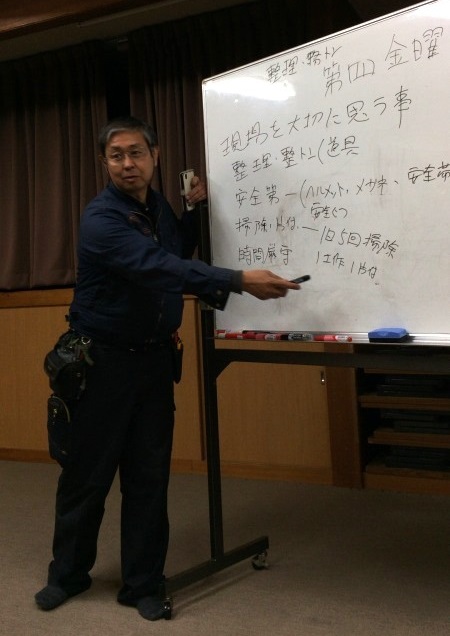 整理・整トン
第四 金曜
現場を大切に思う事
整理・整トン(道具
安全第一(ヘルメット、メガネ、安全帯
安全ぐつ
掃除・片付 ― 1日5回掃除
時間厳守 1工作1片付